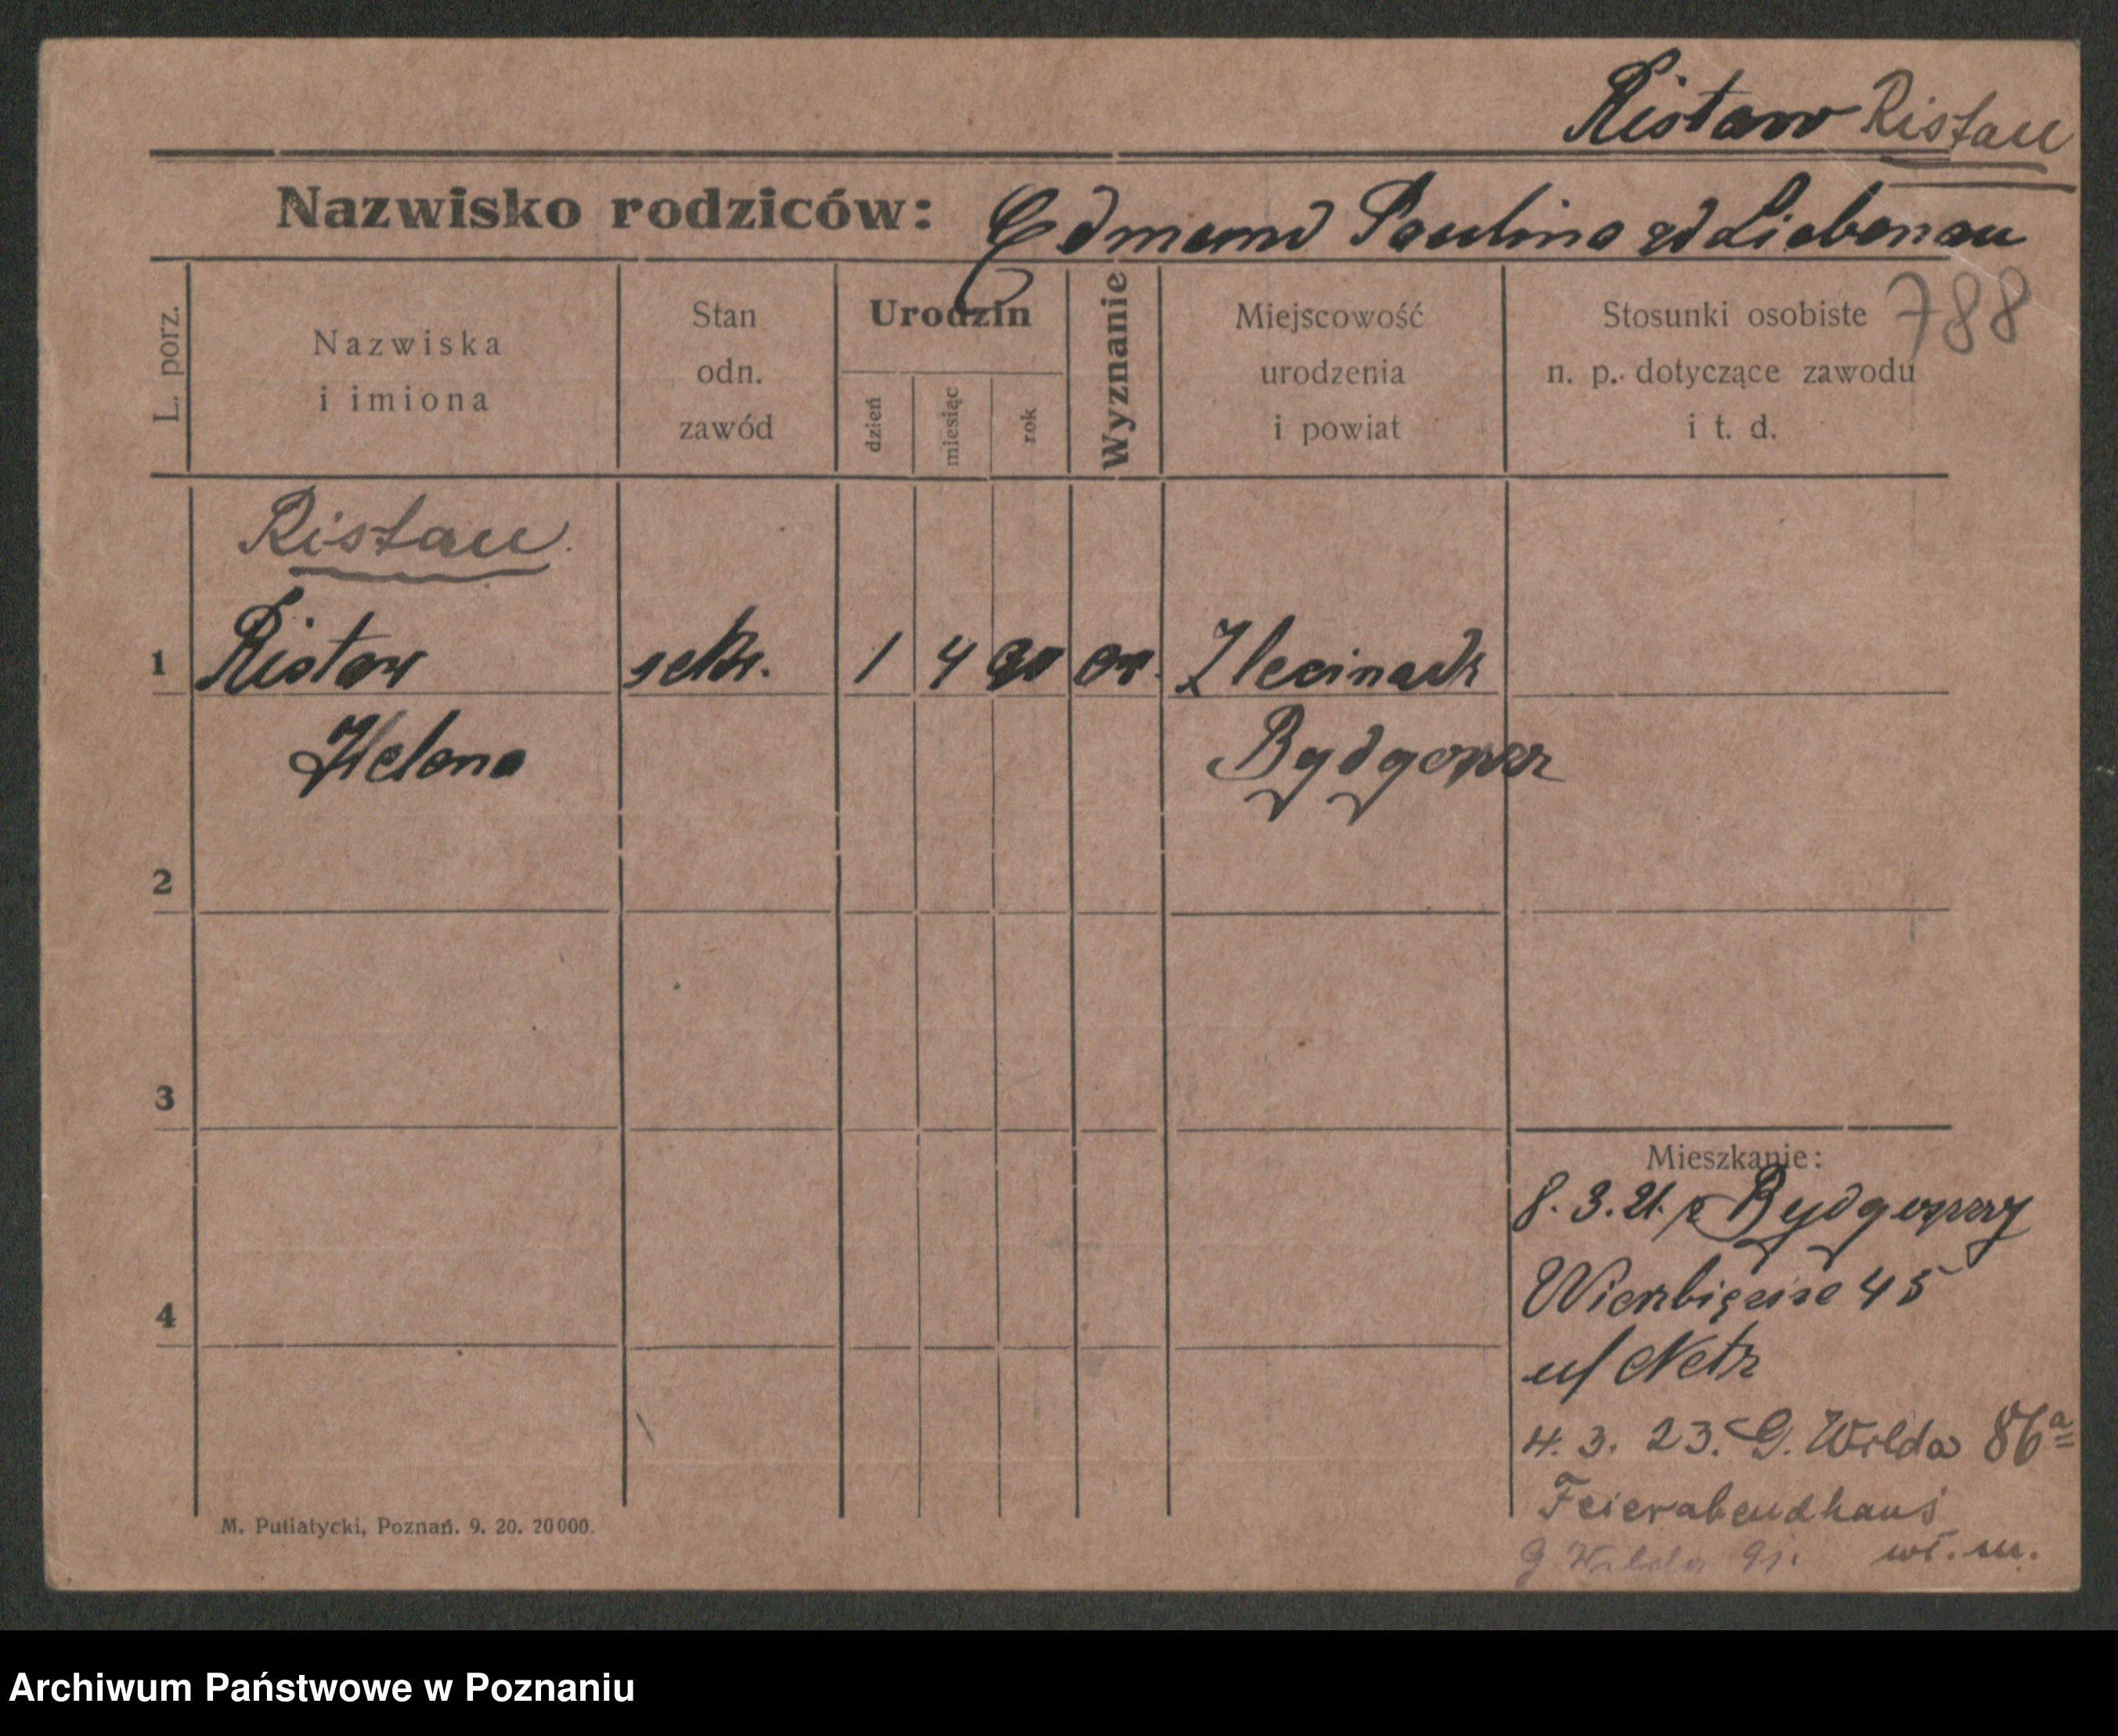 Ristow Ristau
Nazwisko rodziców: Edmund Paulina zd Liebenau
788
L. porz.
Nazwiska
i imiona
Stan
odn.
zawód
Urodzin
dzień
miesiąc
rok
Wyznanie
Miejscowość
urodzenia
i powiat
Stosunki osobiste
n. p. dotyczące zawodu
i t. d.
Ristau
1 Ristow sekr. 1 4 ew.
Helena Bydgoszcz
2
3
Mieszkanie:
8. 3. 21. z Bydgoszczy
4
Wierzbięcice 45
u/ Netz
4. 3. 23. G. Wilda 86a
Feierabendhaus
M. Putiatycki, Poznań. 9. 20. 20000.
G. Wilda 91. wł. m.
Archiwum Państwowe w Poznaniu